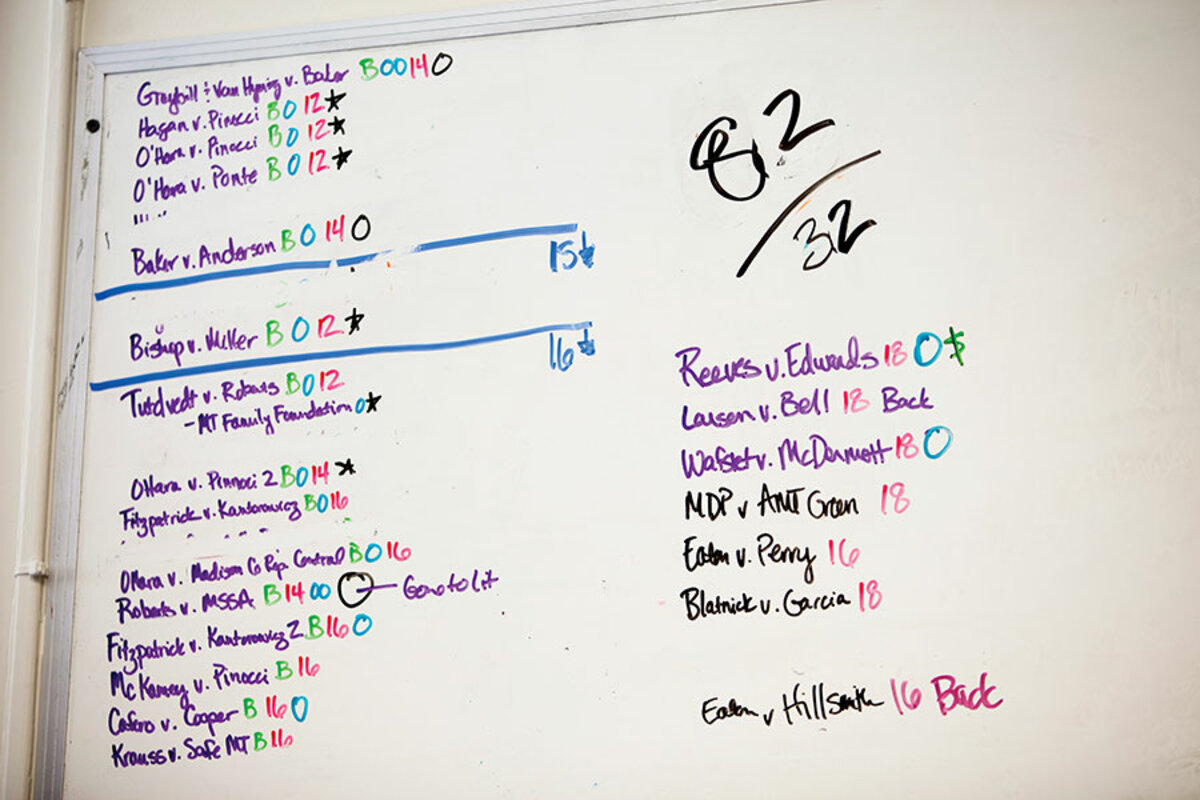 Graybill & Van Hyning v. Baker BOO14O
Hagan v. Pinocci BO12★
O'Hara v. Pinocci BO12★
O'Hara v. Ponte BO12★
Baker v. Anderson BO14O
15↓
Bishop v. Miller BO12★
16↓
Tutvedt v. Roberts BO12
-MT Family Foundation O★
OHara v. Pinnoci 2 BO14★
Fitzpatrick v. Kantorowicz BO16
OHara v. Madison Co Rep. Central BO16
Roberts v. MSSA B14OO O - Gone to Lit
Fitzpatrick v. Kantorowicz 2 B16O
McKamey v. Pinocci B16
Cafero v. Cooper B16O
Krauss v. Safe MT B16
82/32
Reeves v. Edwards 18 O $
Larsen v. Bell 18 Back
v. McDermott 18 O
MDP v AMT Green 18
Eaton v. Perry 16
Blatnick v. Garcia 18
Eaton v Hillsmith 16 Back